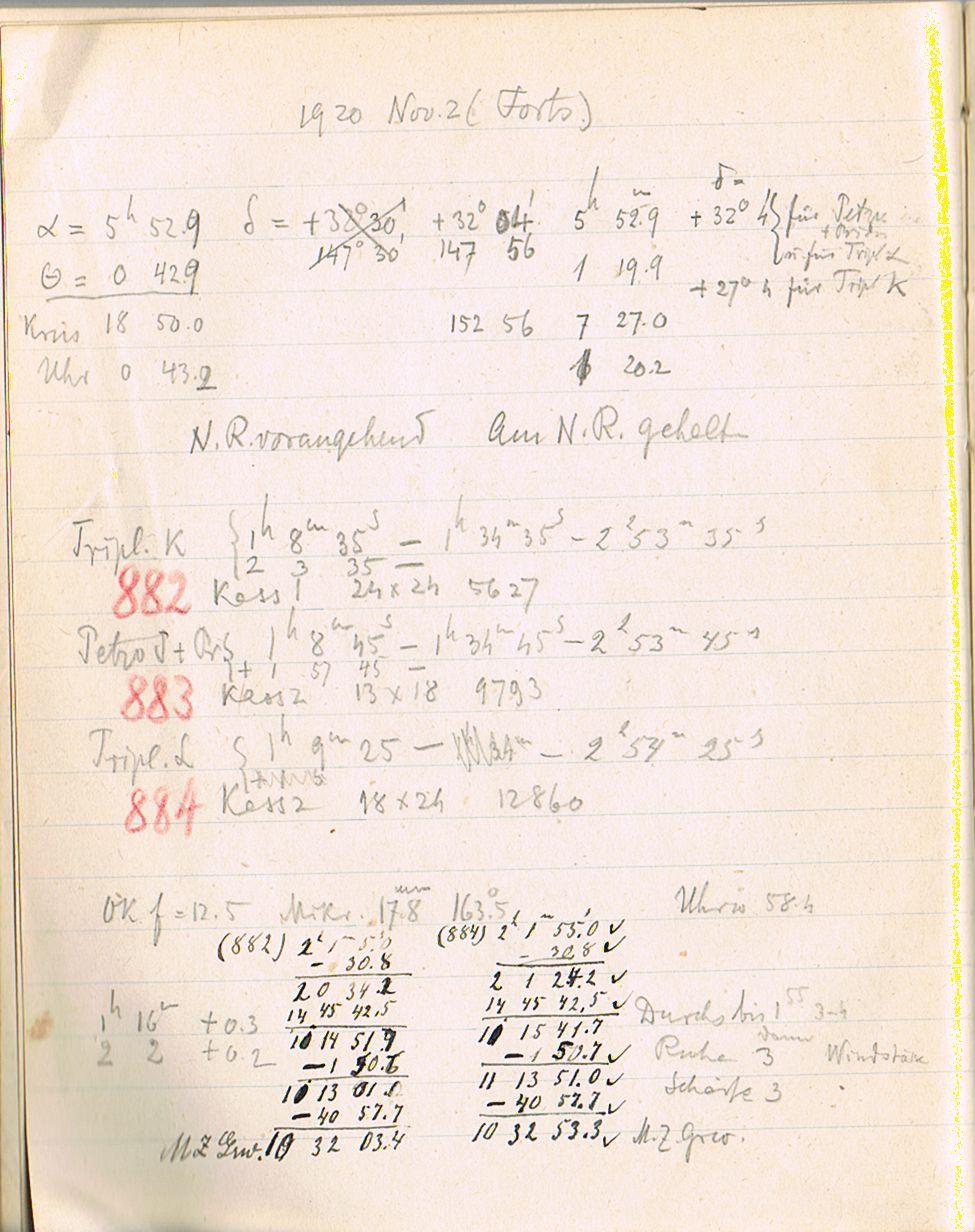 1920 Nov. 2 (Forts.)
δ =
α = 5h 52.9 δ = +32° 30' +32° 04' 5h 52.9m +32° 4' für Petzv
147° 30' 147 56 u. für Tripl L
Θ = 0 42.9 1 19.9 +27° 4 für Tripl K
Kreis 18 50.0 152 56 7 27.0
Uhr 0 43.2 1 20.2
N.R. vorangehend Am N.R. gehalt
Tripl. K { 1h 8m 35s – 1h 34m 35s – 2h 53m 35s
2 3 35 –
882 Kass 1 24×24 5627
Petzv 1h 8m 45s – 1h 34m 45s – 2h 53m 45s
+ 1 57 45 –
883 Kass 2 13×18 9793
Tripl. L { 1h 9m 25 – 34m – 2h 54m 25s
884 Kass 2 18×24 12860
OK f = 12.5 Mikr. 17.8mm 163.5° Uhrw 58.4
(882) 2h 1m 5.0 (884) 2h 1m 55.0 ✓
– 30.8 – 30.8 ✓
2 0 34.2 2 1 24.2 ✓
1h 16m +0.3 14 45 42.5 14 45 42.5 ✓ Durchs bis 1 55 3-4
11 14 51.7 11 15 41.7 dann
2 2 +0.2 – 1 50.7 – 1 50.7 ✓ Ruhe 3 Windstärke
11 13 01.0 11 13 51.0 ✓ Schärfe 3
– 40 57.7 – 40 57.7 ✓
M.Z. Grw. 10 32 03.4 10 32 53.3 ✓ M.Z. Grw.